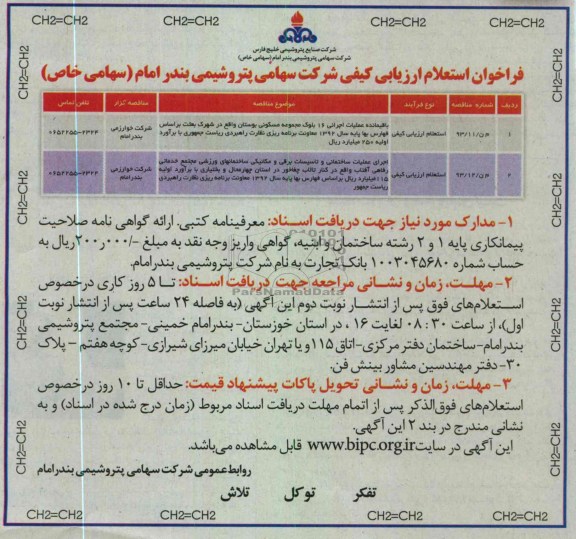 CH2=CH2 CH2=CH2 CH2=CH2 CH2=CH2
شرکت صنایع پتروشیمی خلیج فارس
شرکت سهامی پتروشیمی بندر امام (سهامی خاص)
فراخوان استعلام ارزیابی کیفی شرکت سهامی پتروشیمی بندر امام (سهامی خاص)
ردیف شماره مناقصه نوع فرآیند موضوع مناقصه مناقصه گزار تلفن تماس
۱ م‌ن/۹۳/۱۱ استعلام ارزیابی کیفی باقیمانده عملیات اجرائی ۱۶ بلوک مجموعه مسکونی بوستان واقع در شهرک بعثت براساس فهارس بها پایه سال ۱۳۹۲ معاونت برنامه ریزی نظارت راهبردی ریاست جمهوری با برآورد اولیه ۲۵۰ میلیارد ریال شرکت خوارزمی بندرامام ۰۶۵۲۲۵۵-۲۳۲۴
۲ م‌ن/۹۳/۱۲ استعلام ارزیابی کیفی اجرای عملیات ساختمانی و تاسیسات برقی و مکانیکی ساختمانهای ورزشی مجتمع خدماتی رفاهی آفتاب واقع در کنار تالاب چغاخور در استان چهارمحال و بختیاری با برآورد اولیه ۱۱۵ میلیارد ریال براساس فهارس بها پایه سال ۱۳۹۲ معاونت برنامه ریزی نظارت راهبردی ریاست جمهور شرکت خوارزمی بندرامام ۰۶۵۲۲۵۵-۲۳۲۴
۱- مدارک مورد نیاز جهت دریافت اسناد: معرفینامه کتبی. ارائه گواهی نامه صلاحیت
پیمانکاری پایه ۱ و ۲ رشته ساختمان و ابنیه، گواهی واریز وجه نقد به مبلغ -/۲۰۰ر۰۰۰ ریال به
حساب شماره ۱۰۰۳۰۴۵۶۸۰ بانک تجارت به نام شرکت پتروشیمی بندرامام.
۲- مهلت، زمان و نشانی مراجعه جهت دریافت اسناد: تا ۵ روز کاری درخصوص
استعلام‌های فوق پس از انتشار نوبت دوم این آگهی (به فاصله ۲۴ ساعت پس از انتشار نوبت
اول)، از ساعت ۳۰ : ۰۸ لغایت ۱۶ ، در استان خوزستان- بندرامام خمینی- مجتمع پتروشیمی
بندرامام-ساختمان دفتر مرکزی-اتاق ۱۱۵ و یا تهران خیابان میرزای شیرازی- کوچه هفتم - پلاک
۳۰- دفتر مهندسین مشاور بینش فن.
۳- مهلت، زمان و نشانی تحویل پاکات پیشنهاد قیمت: حداقل تا ۱۰ روز درخصوص
استعلام‌های فوق‌الذکر پس از اتمام مهلت دریافت اسناد مربوط (زمان درج شده در اسناد) و به
نشانی مندرج در بند ۲ این آگهی.
این آگهی در سایت www.bipc.org.ir قابل مشاهده می‌باشد.
روابط عمومی شرکت سهامی پتروشیمی بندرامام
تفکر توکل تلاش
CH2=CH2 CH2=CH2 CH2=CH2 CH2=CH2
ParsNamadData